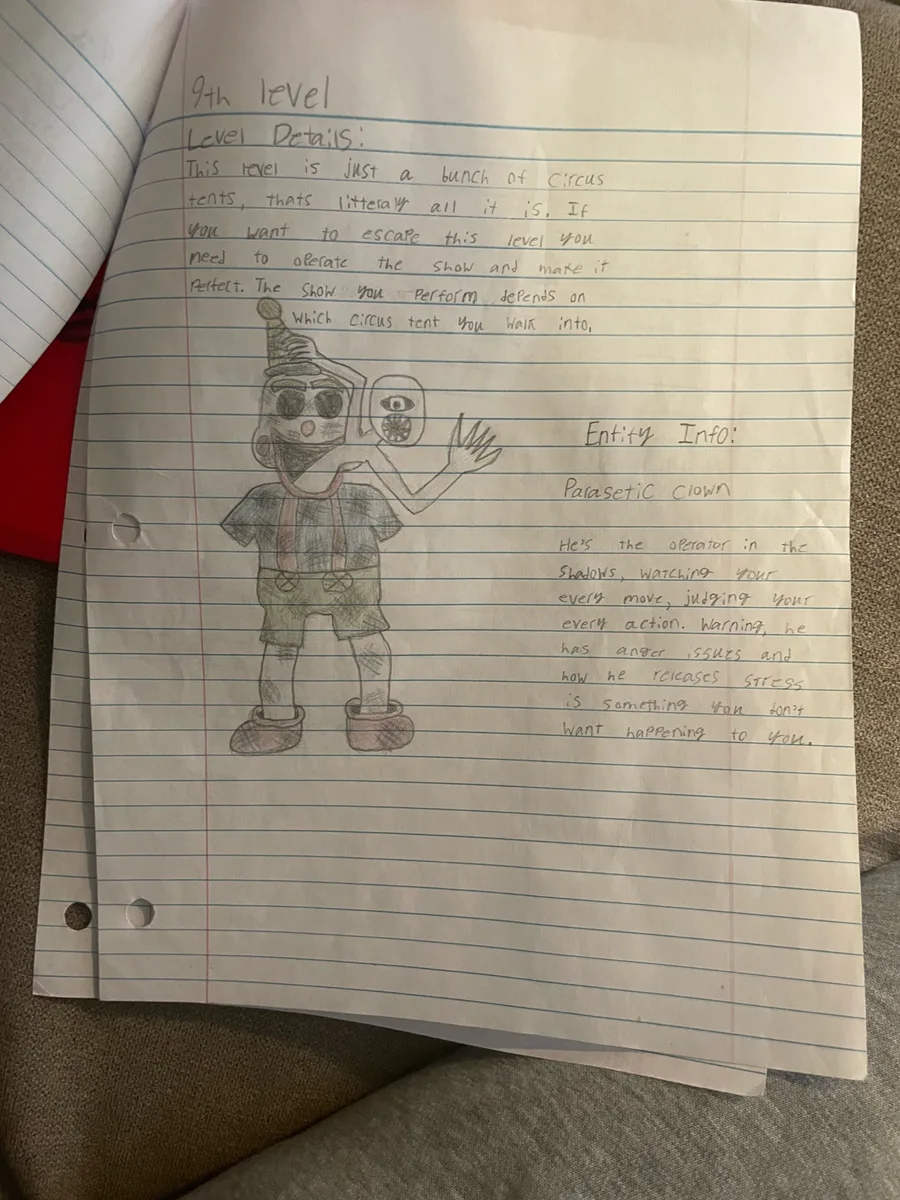 9th level
Level Details:
This level is just a bunch of circus
tents, thats litteraly all it is. If
you want to escape this level you
need to operate the show and make it
perfect. The show you perform depends on
which circus tent you walk into,
Entity Info:
Parasetic clown
He's the operator in the
shadows, watching your
every move, judging your
every action. Warning, he
has anger issues and
how he releases stress
is something you don't
want happening to you.